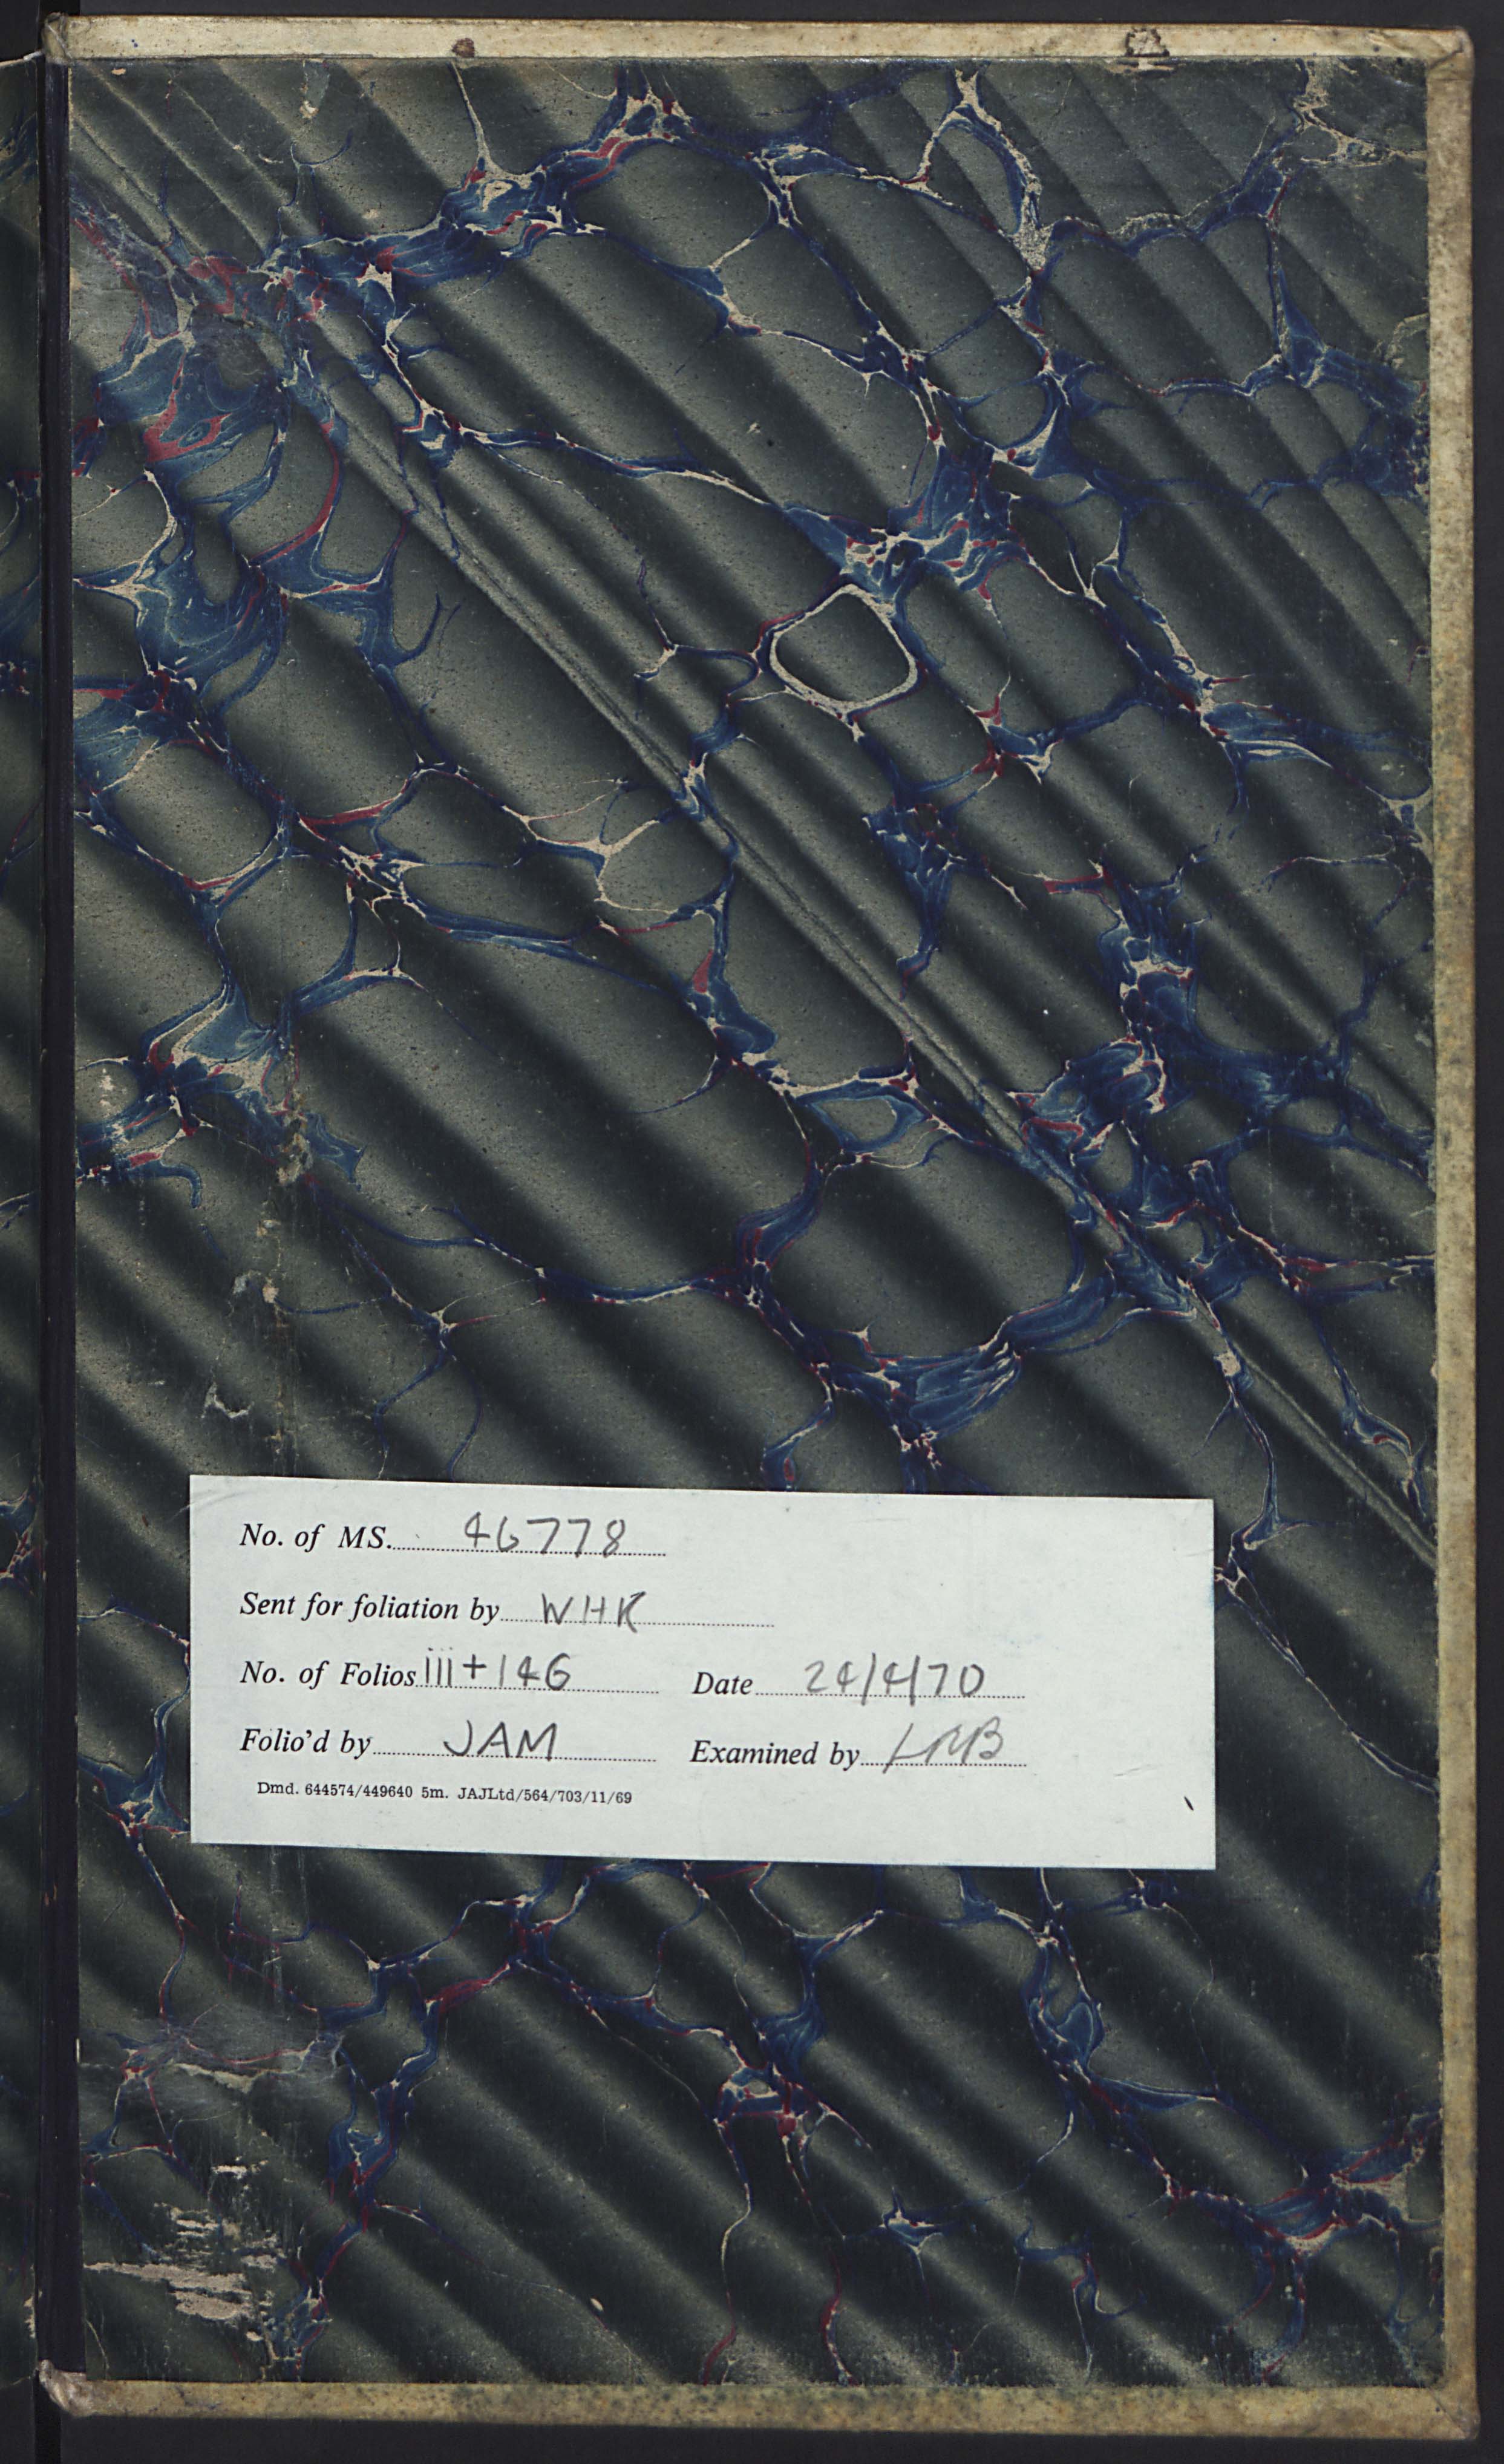 No. of MS. 46778
Sent for foliation by WHK
No. of Folios iii+146 Date 24/4/70
Folio'd by JAM Examined by LMB
Dmd. 644574/449640 5m. JAJLtd/564/703/11/69